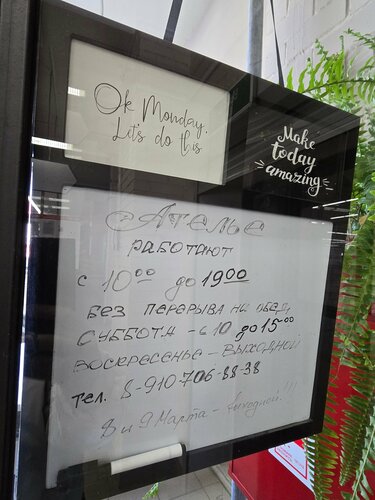 Ok Monday,
Let's do this
Make
today
amazing
АТЕЛЬЕ
РАБОТАЮТ
с 10⁰⁰ до 19⁰⁰
БЕЗ ПЕРЕРЫВА НА ОБЕД,
СУББОТА - с 10 до 15⁰⁰
ВОСКРЕСЕНЬЕ - ВЫХОДНОЙ
тел. 8-910-706-88-38
8 и 9 Марта - выходной!!!